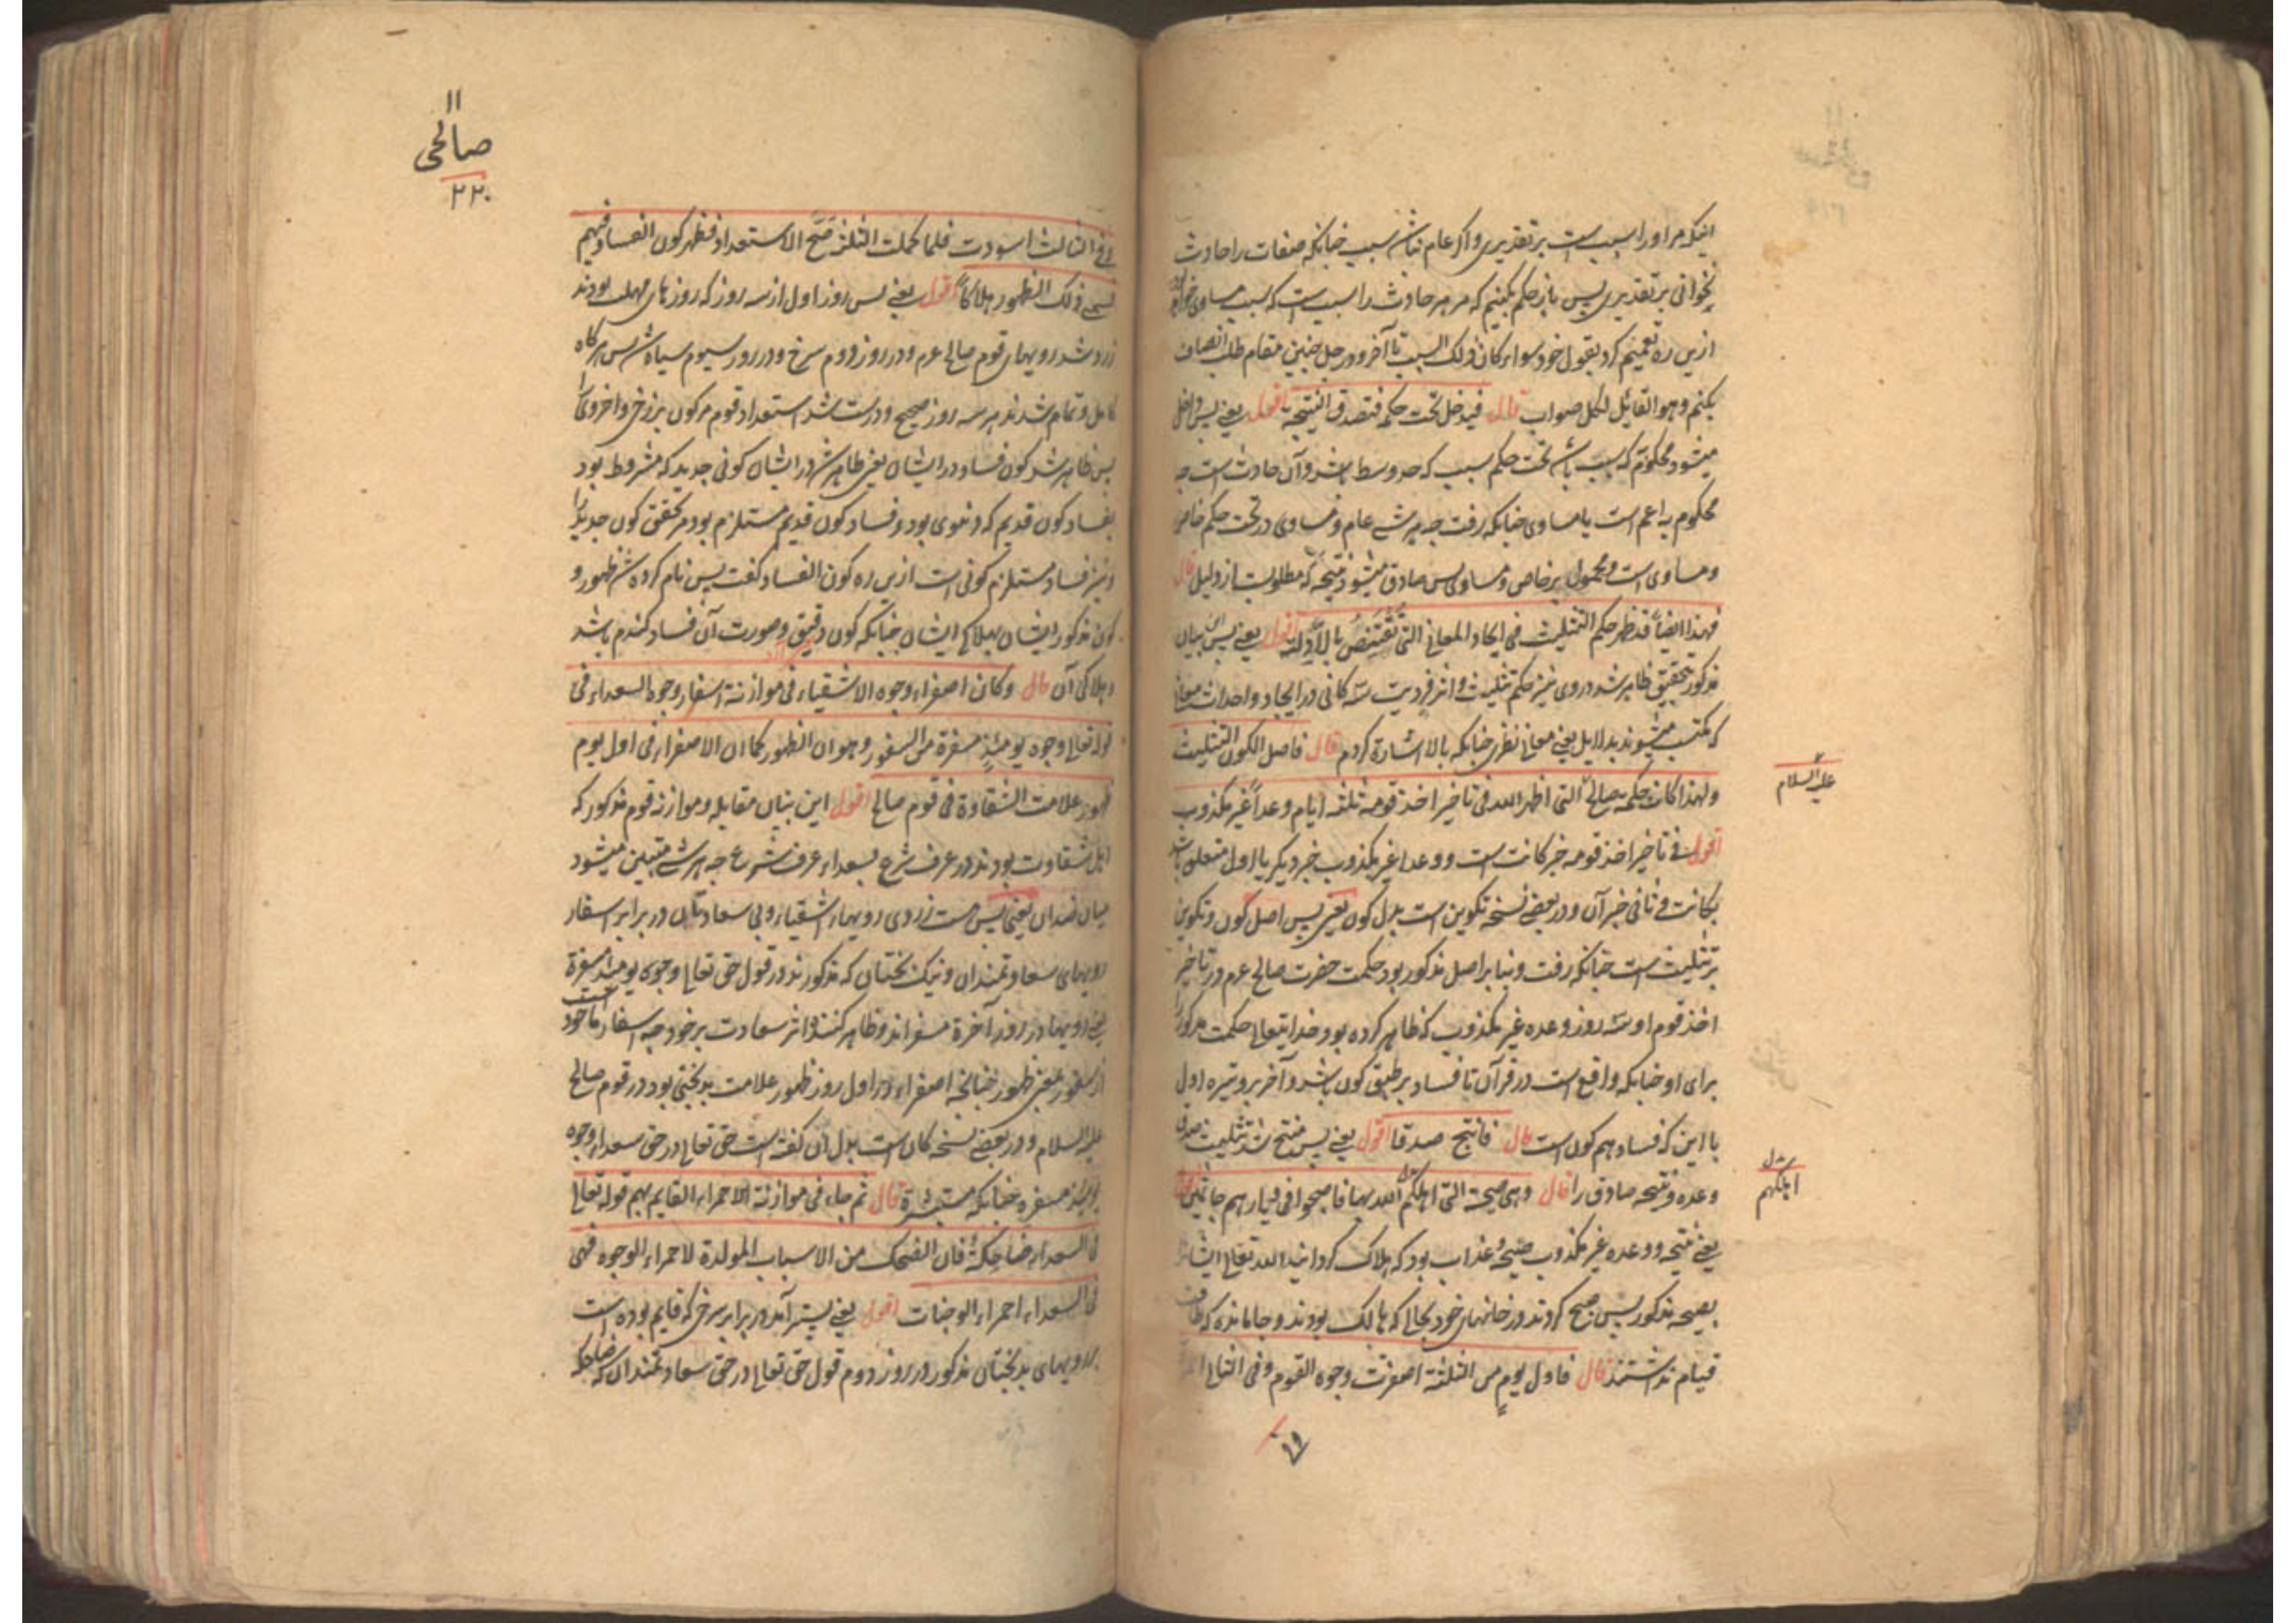 اینکه مر او را سبب است بر تقدیری و اگر عام نباشد سبب چنانکه صفقات را حادث
نخوانی بر تقدیری پس باز حکم بکنیم که مر هر حادث را سبب است که سبب مساوی
ازین ره تعمیم کرد بقول خود سواء کان ذلک السبب تا آخر و در حل چنین مقام طلب انصاف
بکنم وهو القائل لکل صواب قال فیدخل تحت حکمه فتصدق النتیجة اقول یعنی پس داخل
میشود محکوم که سبب باشد تحت حکم سبب که حد وسط باشد و آن حادث است چه
محکوم به اعم است یا مساوی چنانکه رفت چه هر شے عام و مساوی در تحت حکم خاص
و مساوی است و محمول بر خاص و مساوی پس صادق میشود نتیجه که مطلوبست از دلیل قال
فهذا ایضاً قد ظهر حکم التثلیث فی ایجاد المعانی التی تقتنص بالادلة اقول یعنی پس این بیان
مذکور بتحقیق ظاهر شد در وی نیز حکم تثلیث و اثر فردیت سه کانی در ایجاد و احداث معانی
که مکتسب میشوند بدلایل یعنی معانی نظری چنانکه بالا اشارة کردم قال فاصل الکون التثلیث
ولهذا کانت حکمة صالح التی اظهر الله فی تاخیر اخذ قومه ثلثة ایام وعداً غیر مکذوب
علیه السلام
اقول فی تاخیر اخذ قومه خبر کانت است و وعدا غیر مکذوب خبر دیگر یا اول متعلق باشد
بکانت و ثانی خبر آن و در بعضے نسخه تکوین است بدل کون یعنی پس اصل کون و تکوین
بر تثلیث است چنانکه رفت و بنا بر اصل مذکور بود حکمت حضرت صالح عم در تاخیر
اخذ قوم او سه روز وعده غیر مکذوب که ظاهر کرده بود خدایتعالی حکمت مذکور را
برای او چنانکه واقع است در قرآن تا فساد بر طبق کون باشد و آخر بر وتیره اول
با این که فساد هم کون است قال فانتج صدقا اقول یعنی پس منتج شد تثلیث صدق
وعده و نتیجه صادق را قال وهی صیحة التی اهلکهم الله بها فاصبحوا فی دیارهم جاثمین
بدل
اهلکهم
یعنی نتیجه و وعده غیر مکذوب صیحه و عذاب بود که هلاک گردانید الله تعالی ایشانرا
بصیحه مذکور پس صبح کردند در خانهای خود بحالی که هالک بودند و جامانده که طاقت
قیام نداشتند قال فاول یوم من الثلثة اصفرت وجوه القوم وفی الثانی
١١
صالحی
٢٢٠
وفی الثالث اسودت فلما کملت الثلثة صحّ الاستعداد فظهر کون الفساد فیهم
فسمی ذلک الظهور هلاکاً اقول یعنی پس روز اول از سه روز که روزهای مهلت بودند
زرد شد رویهای قوم صالح عم و در روز دوم سرخ و در روز سیوم سیاه شد پس هرگاه
کامل و تمام شدند هر سه روز صحیح و درست شد استعداد قوم مر کون برزخی و اخروی را
پس ظاهر شد کون فساد در ایشان یعنی ظاهر شد در ایشان کونی جدید که مشروط بود
بفساد کون قدیم که دنیوی بود و فساد کون قدیم مستلزم بود مر تحقق کون جدید را
و نیز فساد مستلزم کونی است ازین ره کون الفساد گفت پس نام کرده شد ظهور و
کون مذکور ایشان بهلاک ایشان چنانکه کون دقیق و صورت آن فساد گندم باشد
و هلاکی آن قال وکان اصفرار وجوه الاشقیاء فی موازنة اسفار وجوه السعداء فی
قوله تعالی وجوه یومئذٍ مسفرة من السفور وهو ان الظهور کما ان الاصفرار فی اول یوم
ظهور علامت الشقاوة فی قوم صالح اقول این بیان مقابله و موازنه قوم مذکور که
اهل شقاوت بودند در عرف شرع بسعداء عرف شرع چه هر شے متبین میشود
میان ضدان یعنی پس هست زردی رویهاء اشقیاء و بی سعادتان در برابر اسفار
رویهای سعادتمندان و نیک بختان که مذکورند در قول حق تعالی وجوه یومئذ مسفرة
یعنی رویها در روز آخرة مسفراند و ظاهر کننده اثر سعادت بر خود چه اسفار ماخوذ است
از سفور بمعنی ظهور چنانچه اصفرار در اول روز ظهور علامت بدبختی بود در قوم صالح
علیه السلام و در بعضے نسخه کان است بدل ان گفته است حق تعالی در حق سعداء وجوه
یومئذ مسفرة ضاحکة مستبشرة قال ثم جاء فی موازنة الاحمرار القایم بهم قوله تعالی
فی السعداء ضاحکة فان الضحک من الاسباب المولدة لاحمرار الوجوه فهی
فی السعداء احمرار الوجنات اقول یعنی پستر آمد در برابر سرخی که قایم بوده است
برویهای بدبختان مذکور در روز دوم قول حق تعالی در حق سعادتمندان که ضاحکه